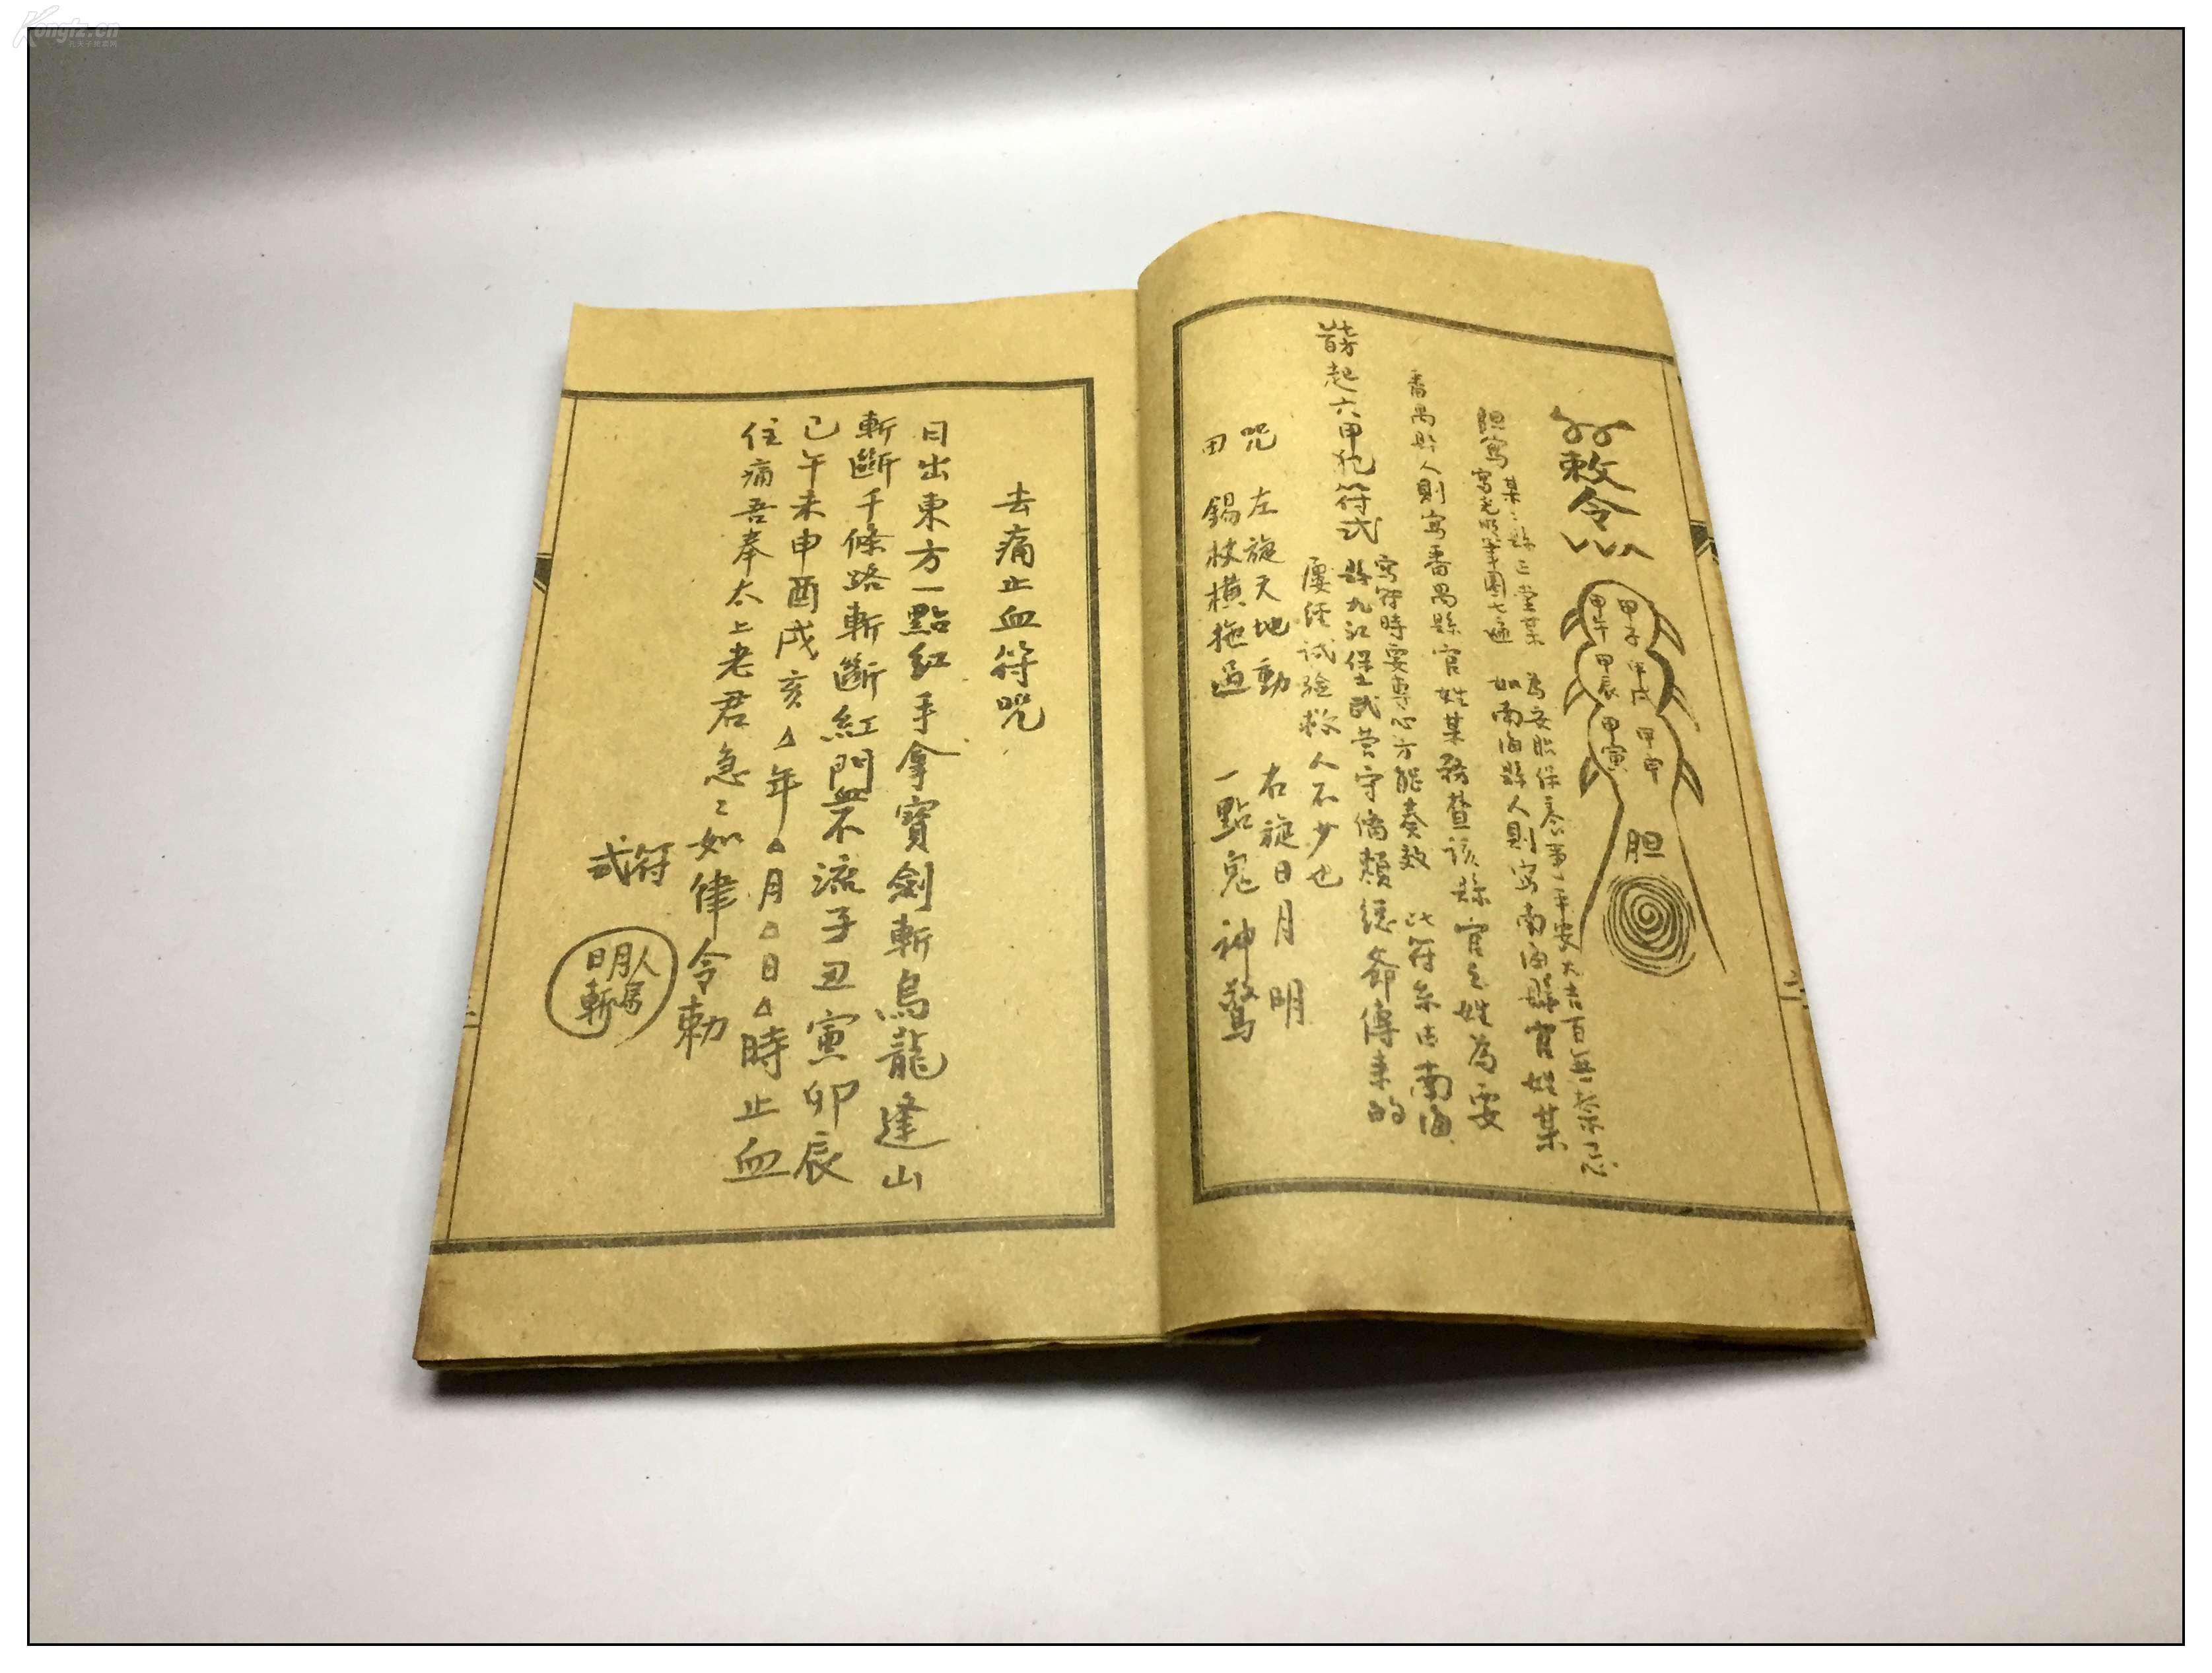 敕令
甲子
甲戌
甲申
甲午
甲辰
甲寅
胆
為安胎保泰事平安大吉百無禁忌
如南海縣人則寫南海縣官姓某
番禺縣人則寫番禺縣官姓某務查該縣官之姓為要
寫符時要專心方能奏效 此符系由南海
起六甲犯符式
縣九江保 營守備 爺傳來的
屢經試驗救人不少也
咒 左旋天地動 右旋日月明
田 錫杖橫拖過 一點鬼神驚
去痛止血符咒
日出東方一點紅手拿寶劍斬烏龍逢山
斬斷千條路斬斷紅門血不流子丑寅卯辰
已午未申酉戌亥△年△月△日△時止血
住痛吾奉太上老君急〻如律令勅
符式
人
明
日
斬
Kongfz.cn